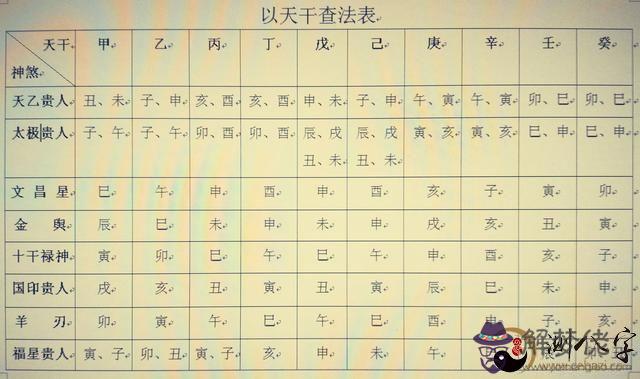 以天干查法表
天干 甲 乙 丙 丁 戊 己 庚 辛 壬 癸
神煞
天乙贵人 丑、未 子、申 亥、酉 亥、酉 申、未 子、申 午、寅 午、寅 卯、巳 卯、巳
太极贵人 子、午 子、午 卯、酉 卯、酉 辰、戌 辰、戌 寅、亥 寅、亥 巳、申 巳、申
丑、未 丑、未
文昌星 巳 午 申 酉 申 酉 亥 子 寅 卯
金舆 辰 巳 未 申 未 申 戌 亥 丑 寅
十干禄神 寅 卯 巳 午 巳 午 申 酉 亥 子
国印贵人 戌 亥 丑 寅 丑 寅 辰 巳 未 申
羊刃 卯 寅 午 巳 午 巳 酉 申 子 亥
福星贵人 寅、子 卯、丑 寅、子 亥 申 未 午 辰
解梦佬